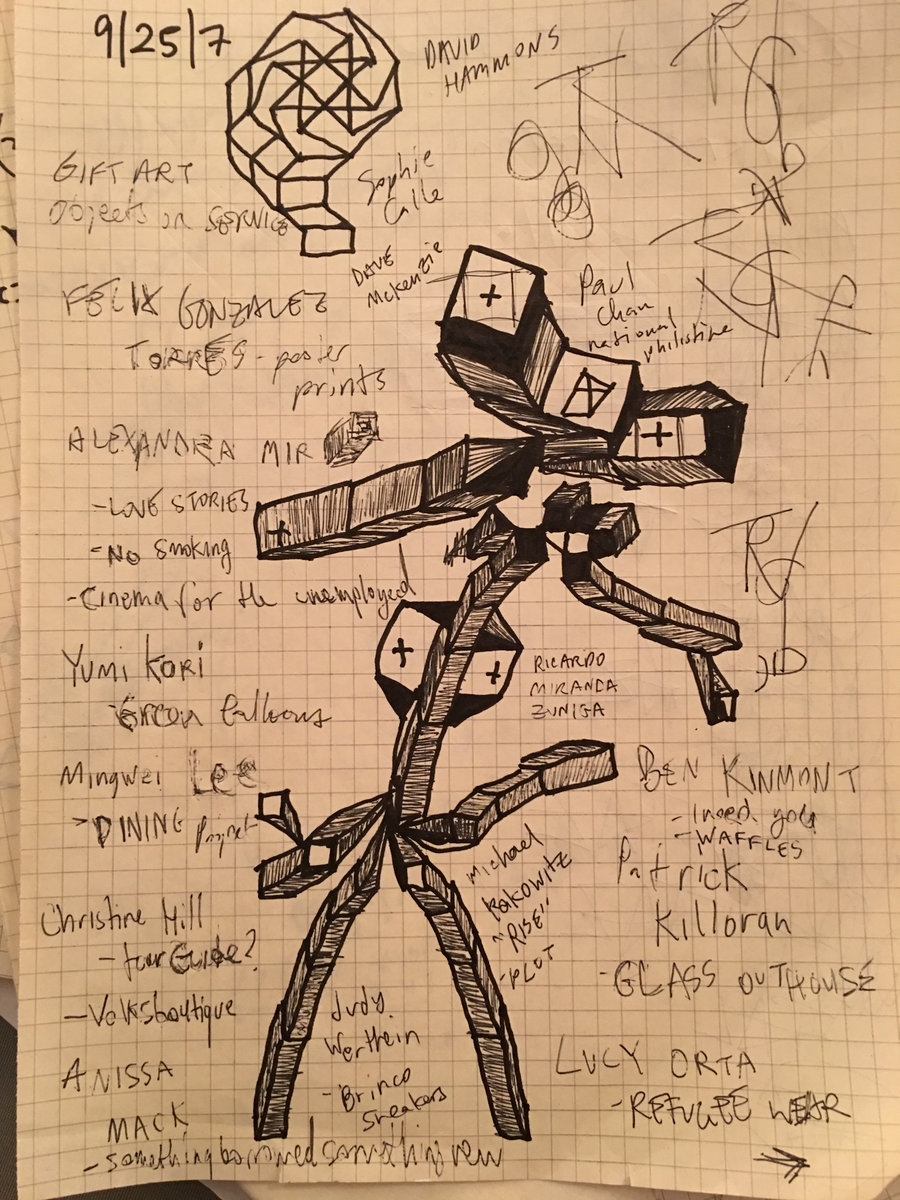 9/25/7
DAVID
HAMMONS
GIFT ART
Objects or SERVICE
Sophie
Calle
DAVE
McKenzie
FELIX GONZALEZ
TORRES - poster
prints
Paul
Chan
national
philistine
ALEXANDRA MIR
- LOVE STORIES
- No Smoking
- Cinema for the unemployed
YUMI KORI
Green balloons
RICARDO
MIRANDA
ZUNIGA
Mingwei Lee
DINING Project
BEN KINMONT
- I need you
- WAFFLES
Patrick
Killoran
- GLASS OUTHOUSE
Michael
Rakowitz
"RISE"
- PLOT
Christine Hill
- tour Guide?
- Volksboutique
Judy
Werthein
- Brinco
sneakers
LUCY ORTA
- REFUGEE WEAR
ANISSA
MACK
- something borrowed something new